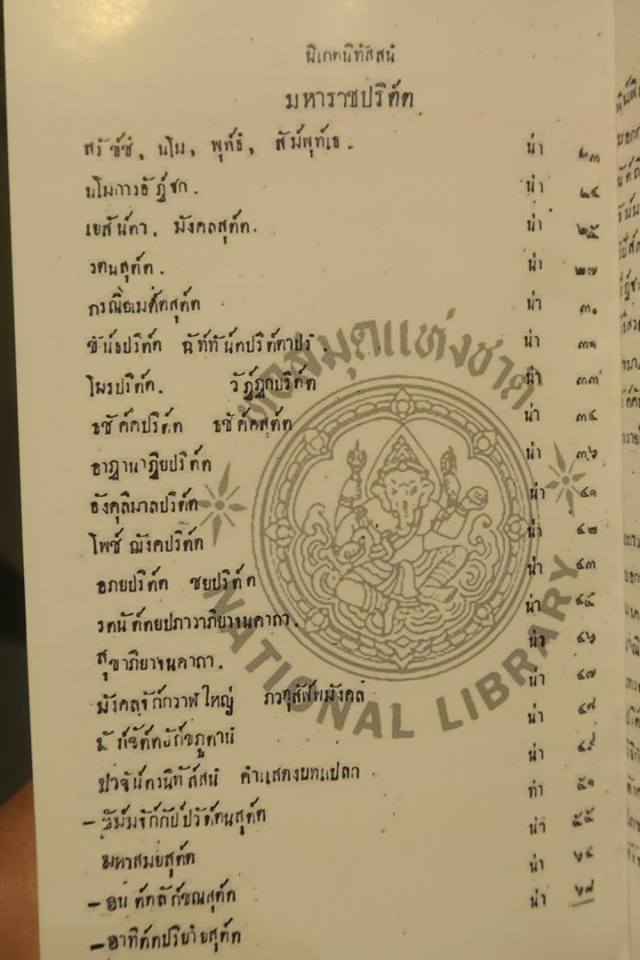 นิเกตนิทัสสนํ
มหาราชปริตัต
สรัชชํ, นโม, พุทธํ, สัมพุทเธ. น่า ๒๓
นโมการอัฏฐก. น่า ๒๔
เยสันตา, มังคลสุตัต. น่า ๒๕
รตนสุตัต. น่า ๒๗
กรณิยเมตัตสุตัต น่า ๓๐
ขันธปริตัต ฉัททันตปริตัต น่า ๓๑
โมรปริตัต. วัฏฏกปริตัต น่า ๓๓
ธชัคคปริตัต ธชัคคสุตัต น่า ๓๔
อาฏานาฏิยปริตัต น่า ๓๖
อังคุลิมาลปริตัต น่า ๔๑
โพชฌังคปริตัต น่า ๔๒
อภยปริตัต ชยปริตัต น่า ๔๓
รตนัตตยปภาวาภิยาจนคาถา. น่า ๔๕
สุขาภิยาจนคาถา. น่า ๔๖
มังคลจักกวาฬใหญ่ ภวตุสัพพมังคลํ น่า ๔๗
น่า ๔๘
คำแสดงบทแปลก น่า ๔๙
- ธัมมจักกัปปวัตตนสุตัต ๕๑
มหาสมยสุตัต น่า ๕๕
- อนัตตลักขณสุตัต น่า ๖๔
- อาทิตตปริยายสุตัต น่า ๖๘
หอสมุดแห่งชาติ
NATIONAL LIBRARY